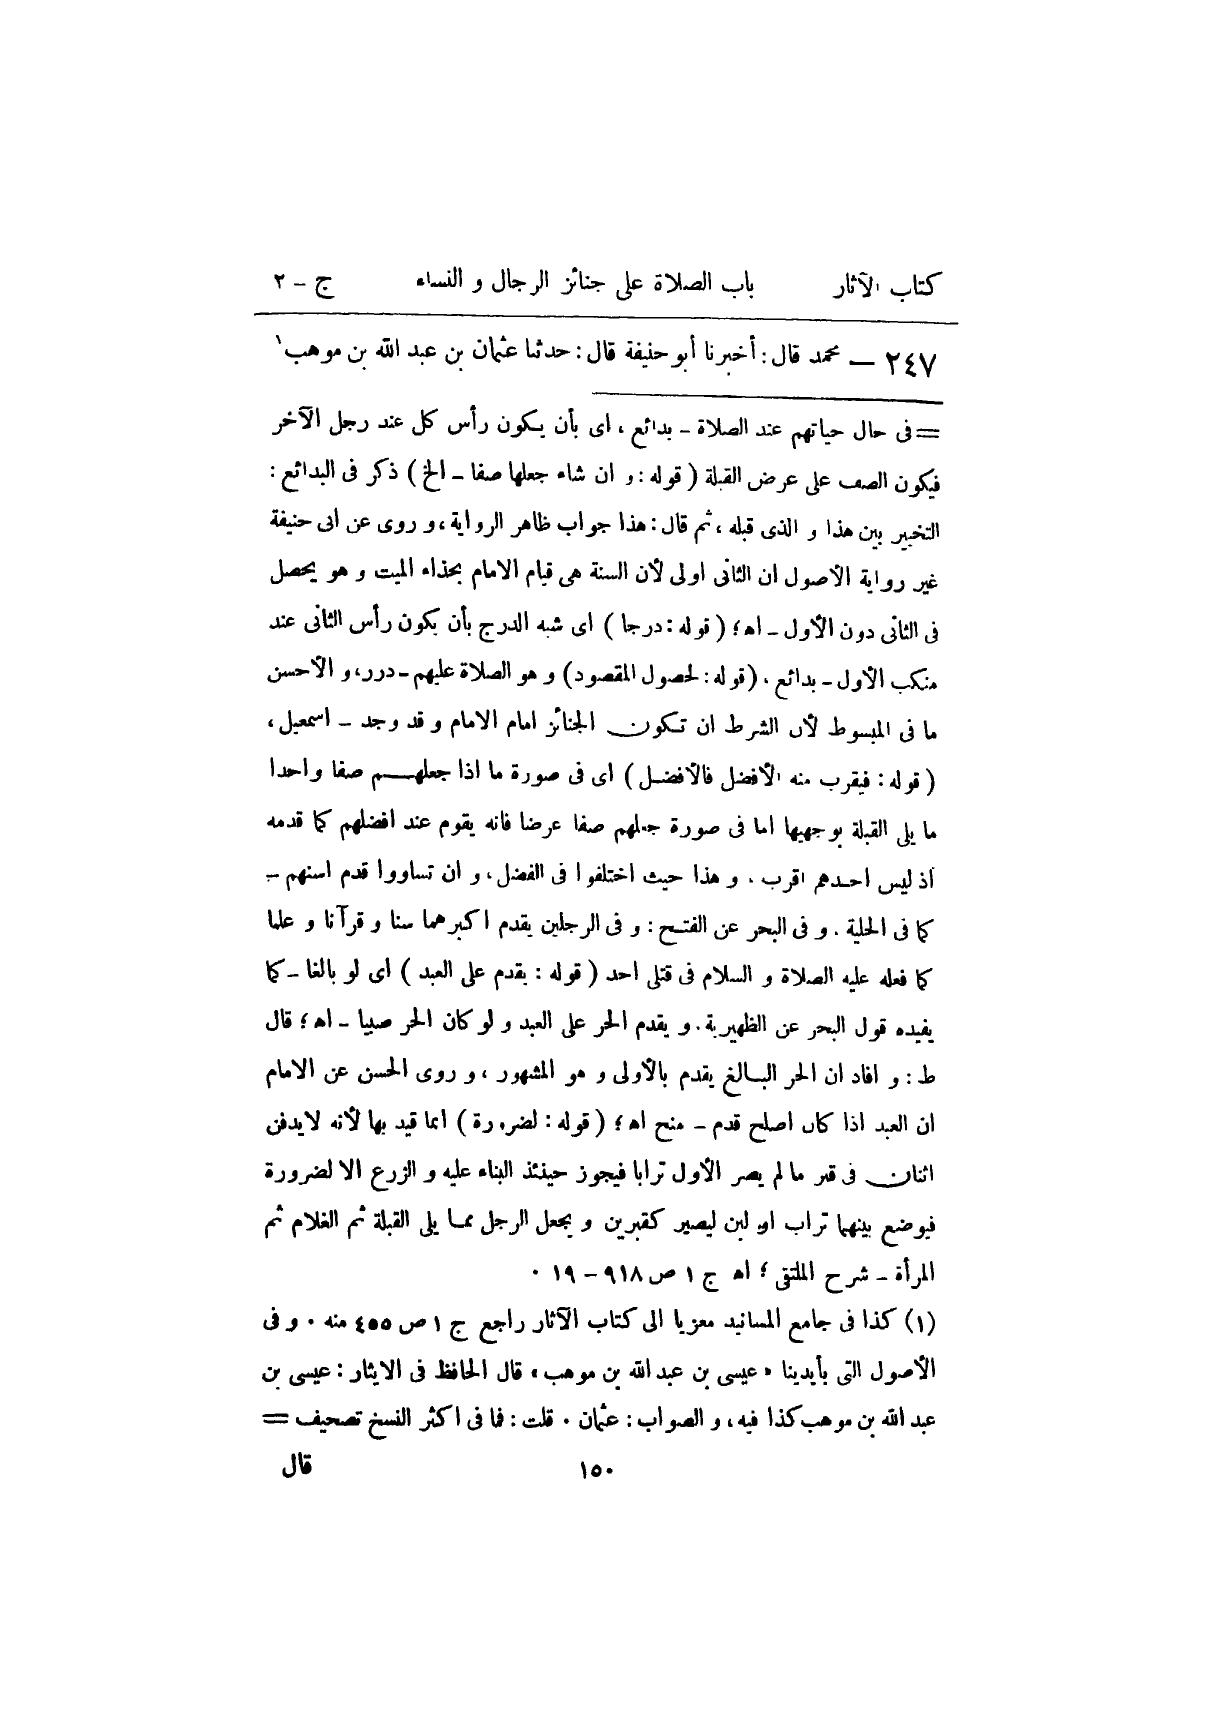 كتاب الآثار باب الصلاة على جنائز الرجال و النساء ج – ٢
٢٤٧ – محمد قال: أخبرنا أبو حنيفة قال: حدثنا عثمان بن عبد الله بن موهب١
= فى حال حياتهم عند الصلاة – بدائع، اى بأن يكون رأس كل عند رجل الآخر
فيكون الصف على عرض القبلة (قوله: و ان شاء جعلها صفا – الخ) ذكر فى البدائع:
التخيير بين هذا و الذى قبله، ثم قال: هذا جواب ظاهر الرواية، و روى عن ابى حنيفة
غير رواية الاصول ان الثانى اولى لأن السنة هى قيام الامام بحذاء الميت و هو يحصل
فى الثانى دون الأول – اهـ؛ (قوله: درجا) اى شبه الدرج بأن يكون رأس الثانى عند
منكب الأول – بدائع. (قوله: لحصول المقصود) و هو الصلاة عليهم – درر، و الأحسن
ما فى المبسوط لأن الشرط ان تكون الجنائز امام الامام و قد وجد – اسمعيل،
(قوله: فيقرب منه الأفضل فالأفضل) اى فى صورة ما اذا جعلهم صفا واحدا
ما يلى القبلة بوجهيها اما فى صورة جعلهم صفا عرضا فانه يقوم عند افضلهم كما قدمه
اذ ليس احدهم اقرب. و هذا حيث اختلفوا فى الفضل، و ان تساووا قدم اسنهم –
كما فى الحلية. و فى البحر عن الفتح: و فى الرجلين يقدم اكبرهما سنا و قرآنا و علما
كما فعله عليه الصلاة و السلام فى قتلى احد (قوله: يقدم على العبد) اى لو بالغا – كما
يفيده قول البحر عن الظهيرية. و يقدم الحر على العبد و لو كان الحر صبيا – اهـ؛ قال
ط: و افاد ان الحر البالغ يقدم بالأولى و هو المشهور، و روى الحسن عن الامام
ان العبد اذا كان اصلح قدم – منح اهـ؛ (قوله: لضرورة) انما قيد بها لأنه لايدفن
اثنان فى قبر ما لم يصر الأول ترابا فيجوز حينئذ البناء عليه و الزرع الا لضرورة
فيوضع بينهما تراب او لبن ليصير كقبرين و يجعل الرجل مما يلى القبلة ثم الغلام ثم
المرأة – شرح الملتقى؛ اهـ ج ١ ص ٩١٨ – ١٩ ٠
(١) كذا فى جامع المسانيد معزيا الى كتاب الآثار راجع ج ١ ص ٤٥٥ منه ٠ و فى
الأصول التى بأيدينا « عيسى بن عبد الله بن موهب» قال الحافظ فى الايثار: عيسى بن
عبد الله بن موهب كذا فيه، و الصواب: عثمان ٠ قلت: فما فى اكثر النسخ تصحيف =
١٥٠ قال